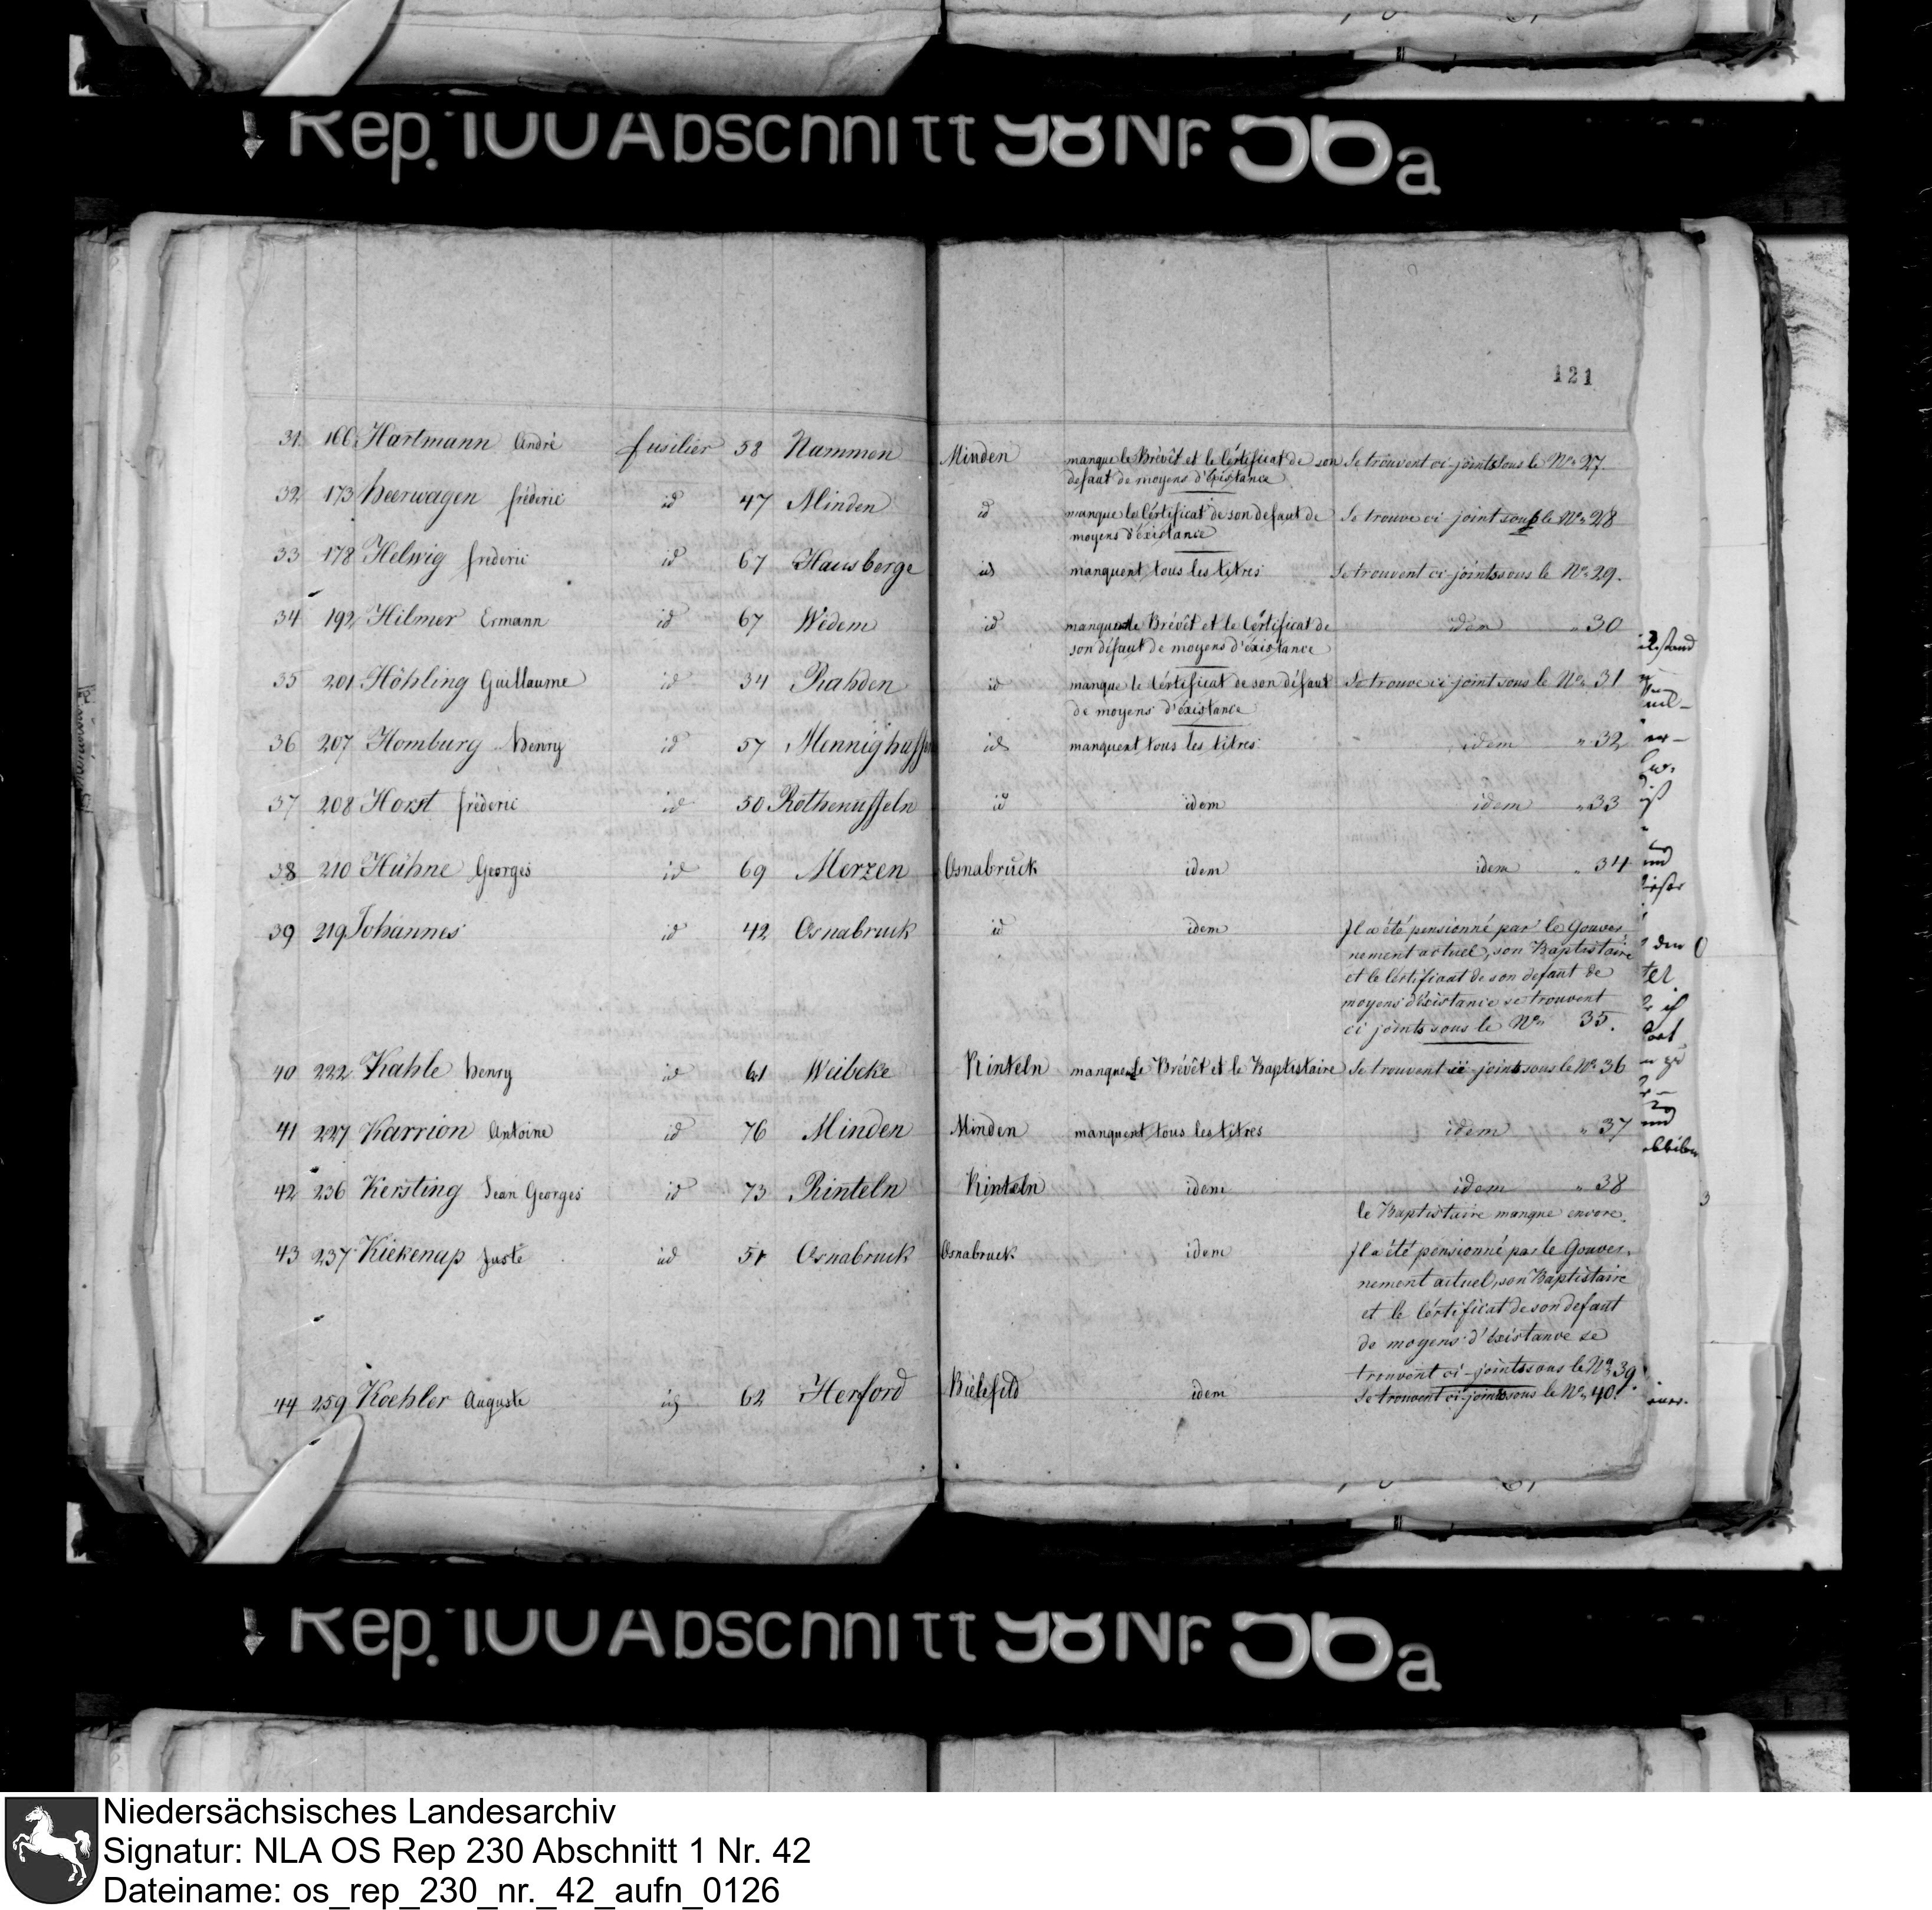 Rep. 100 Abschnitt 98 Nr. 56a
121
31 166 Hartmann André fusilier 58 Nammen Minden manque le Brévêt et le Cértificat de son Se trouvent ci-joints sous le Nº 27
defaut de moyens d'éxistance
32 173 heerwagen fréderic id 47 Minden id manque le Cértificat de son defaut de Se trouve ci joint sous le Nº 28
moyens d'éxistance
33 178 Helwig frederic id 67 Hausberge id manquent tous les titres Se trouvent ci-joints sous le Nº 29.
34 192 Hilmer Ermann id 67 Wedem id manque le Brévêt et le Cértificat de idem " 30
son défaut de moyens d'éxistance
35 201 Höhling Guillaume id 34 Rahden id manque le Cértificat de son défaut Se trouve ci-joint sous le Nº 31
de moyens d'éxistance
36 207 Homburg henry id 57 Mennighuffen id manquent tous les titres idem " 32
37 208 Horst fréderic id 50 Rothenuffeln id idem idem " 33
38 210 Hühne Georges id 69 Merzen Osnabruck idem idem " 34
39 219 Johannes id 42 Osnabruck id idem Il a été pensionné par le Gouver-
nement actuel, son Baptistaire
et le Cértificat de son defaut de
moyens d'éxistance se trouvent
ci joints sous le Nº 35.
40 222 Kahle henry id 61 Weibeke Rinteln manque le Brévêt et le Baptistaire Se trouvent ci-joints sous le Nº 36
41 227 Karrion Antoine id 76 Minden Minden manquent tous les titres idem " 37
42 236 Kersting Jean Georges id 73 Rinteln Rinteln idem idem " 38
le Baptistaire manque encore.
43 237 Kiekenap Juste id 51 Osnabruck Osnabruck idem Il a été pensionné par le Gouver-
nement actuel, son Baptistaire
et le Cértificat de son defaut
de moyens d'éxistance se
trouvent ci-joints sous le Nº 39.
44 259 Koehler Auguste id 62 Herford Bielefeld idem Se trouvent ci-joints sous le Nº 40.
Rep. 100 Abschnitt 98 Nr. 56a
Niedersächsisches Landesarchiv
Signatur: NLA OS Rep 230 Abschnitt 1 Nr. 42
Dateiname: os_rep_230_nr._42_aufn_0126